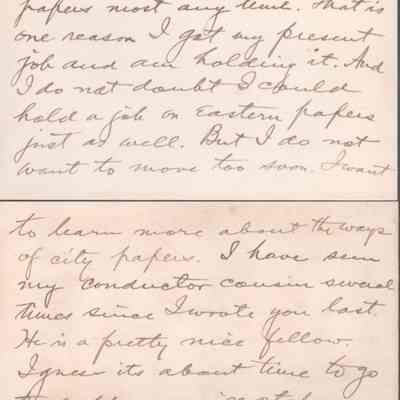 papers most any time. That is
one reason I got my present
job and am holding it. And
I do not doubt I could
hold a job on Eastern papers
just as well. But I do not
want to move too soon. I want
to learn more about the ways
of city papers. I have seen
my conductor cousin several
times since I wrote you last.
He is a pretty nice fellow.
I guess its about time to go
to